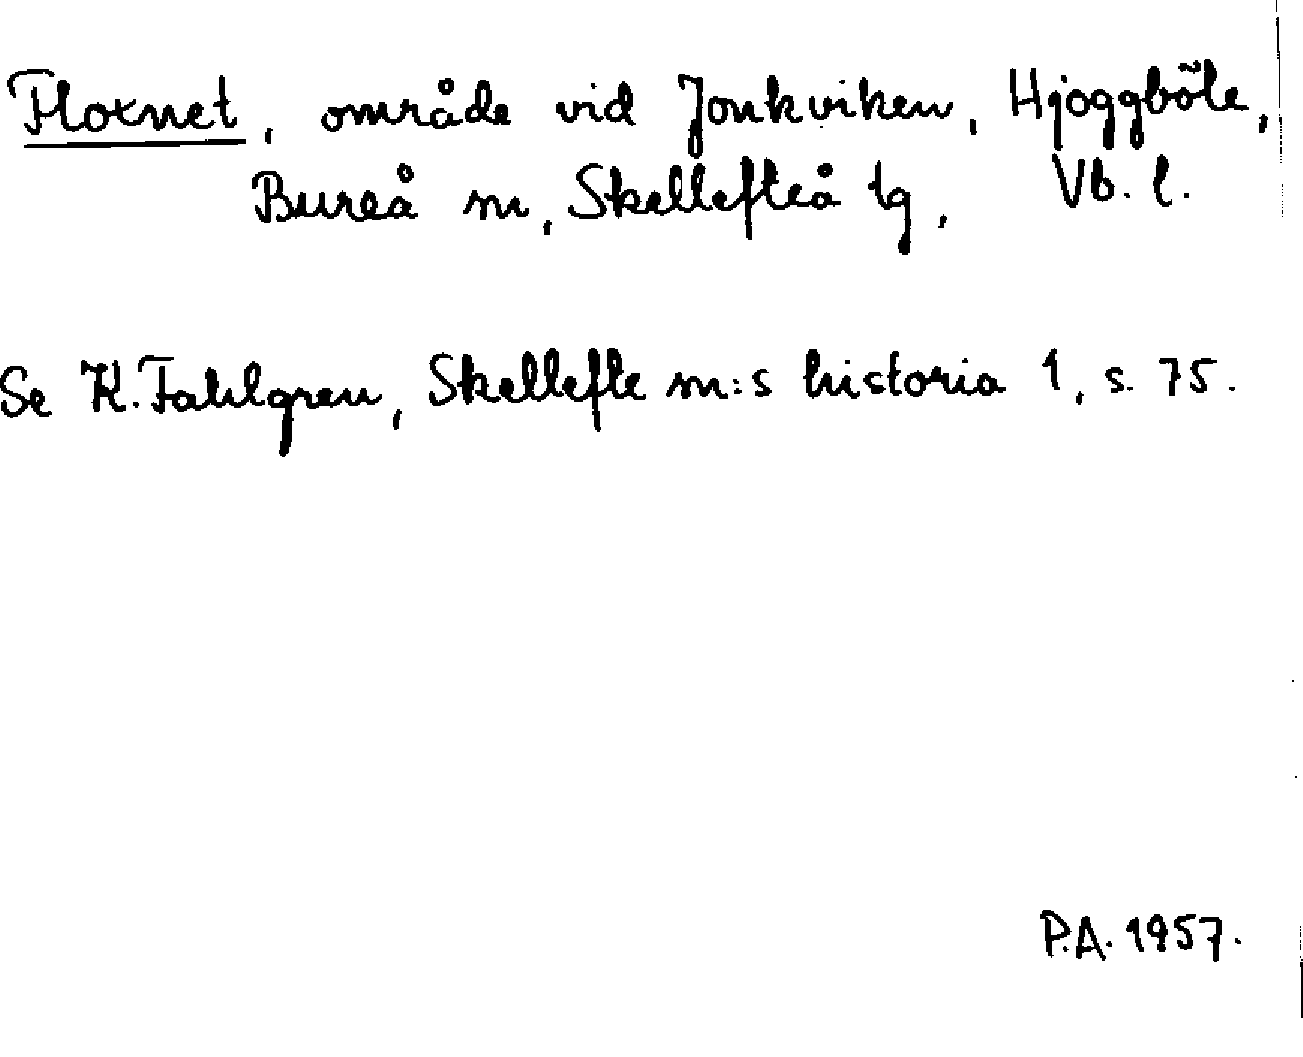 Ploxnet, område vid Jonkviken, Hjoggböle,
Bureå sn, Skellefteå tg, Vb. l.
Se K. Fahlgren, Skellefte sn:s historia 1, s. 75.
P.A. 1957.